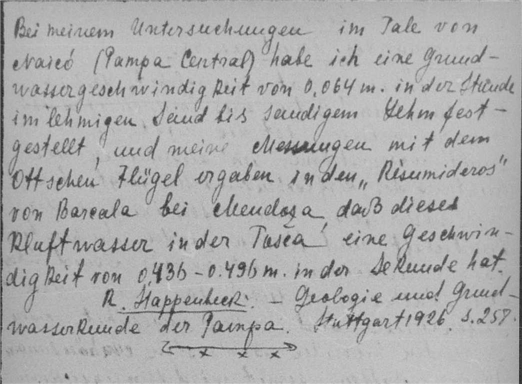 Bei meinem Untersuchungen im Tale von
Naicó (Pampa Central) habe ich eine Grund-
wassergeschwindigkeit von 0,064 m. in der Stunde
im lehmigen Sand bis sandigem Lehm fest-
gestellt, und meine Messungen mit dem
Ottschen Flügel ergaben in den „Resumideros"
von Barcala bei Mendoza, daß dieses
Kluftwasser in der Tosca eine Geschwin-
digkeit von 0,436-0.496 m. in der Sekunde hat.
R. Stappenbeck. - Geologie und Grund-
wasserkunde der Pampa. Stuttgart 1926. S. 257.